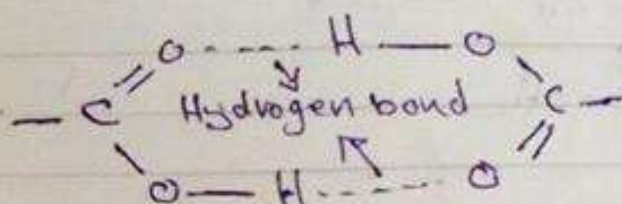 O H O
C Hydrogen bond C
O H O